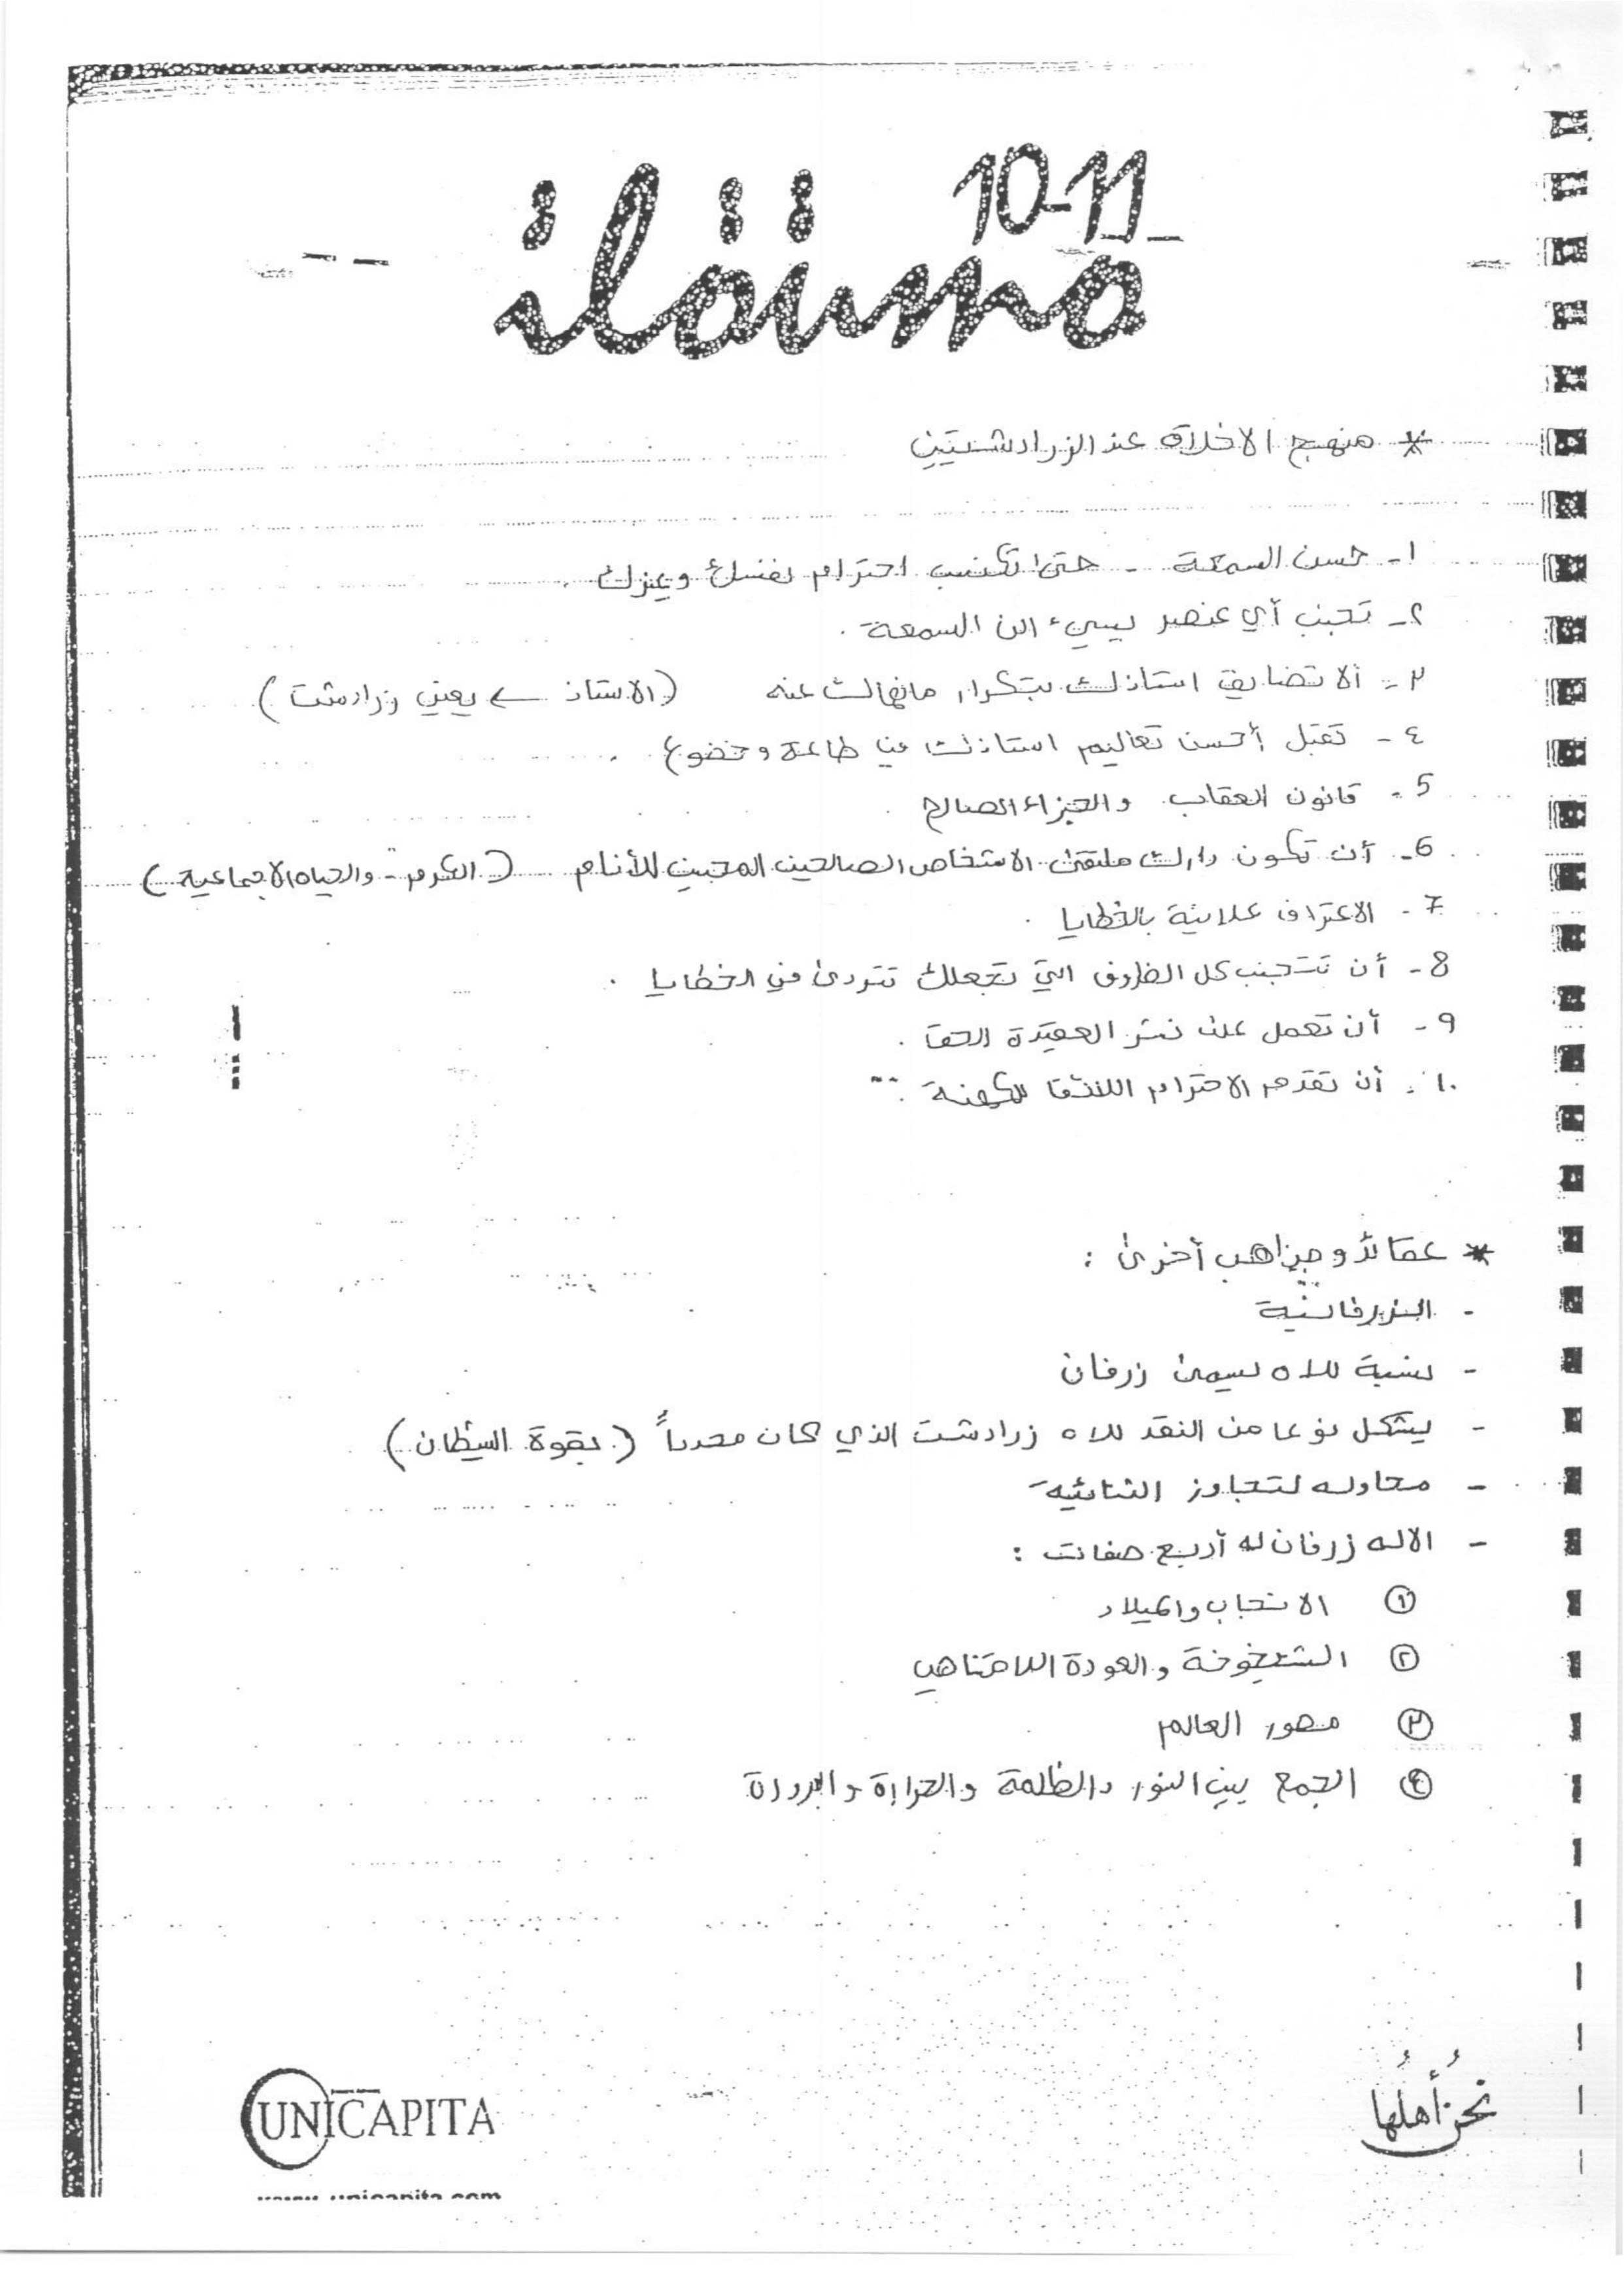 10-11
* منهج الاخلاق عند الزرادشتيين
١- حسن السمعة - حتى تكسب احترام نفسك وغيرك .
٢- تجنب أي عنصر يسيء الى السمعة .
٣- ألا تضايق استاذك بتكرار مانهاك عنه (الاستاذ ← يعني زرادشت)
٤- تقبل أحسن تعاليم استاذك في طاعة وخضوع .
5- قانون العقاب والجزاء الصالح
6- أن تكون دارك ملتقى الاشخاص الصالحين المحبين للأنام (الكرم - والحياه الاجماعية)
7- الاعتراف علانية بالخطايا .
8- أن تتجنب كل الظروف التي تجعلك تتردى في الخطايا .
٩- أن تعمل على نشر العقيدة الحقة .
١٠- أن تقدم الاحترام اللائق للكهنة .
* عقائد ومذاهب أخرى :
- الزرفانية
- نسبة للاه يسمى زرفان
- يشكل نوعا من النقد للاه زرادشت الذي كان محدداً (بقوة الشيطان)
- محاوله لتجاوز الثنائية
- الاله زرفان له أربع صفات :
① الانجاب والميلاد
② الشيخوخة والعودة اللامتناهي
③ محور العالم
④ الجمع بين النور والظلمة والحرارة والبرودة
UNICAPITA
www.unicapita.com
نحنُ أهلُها